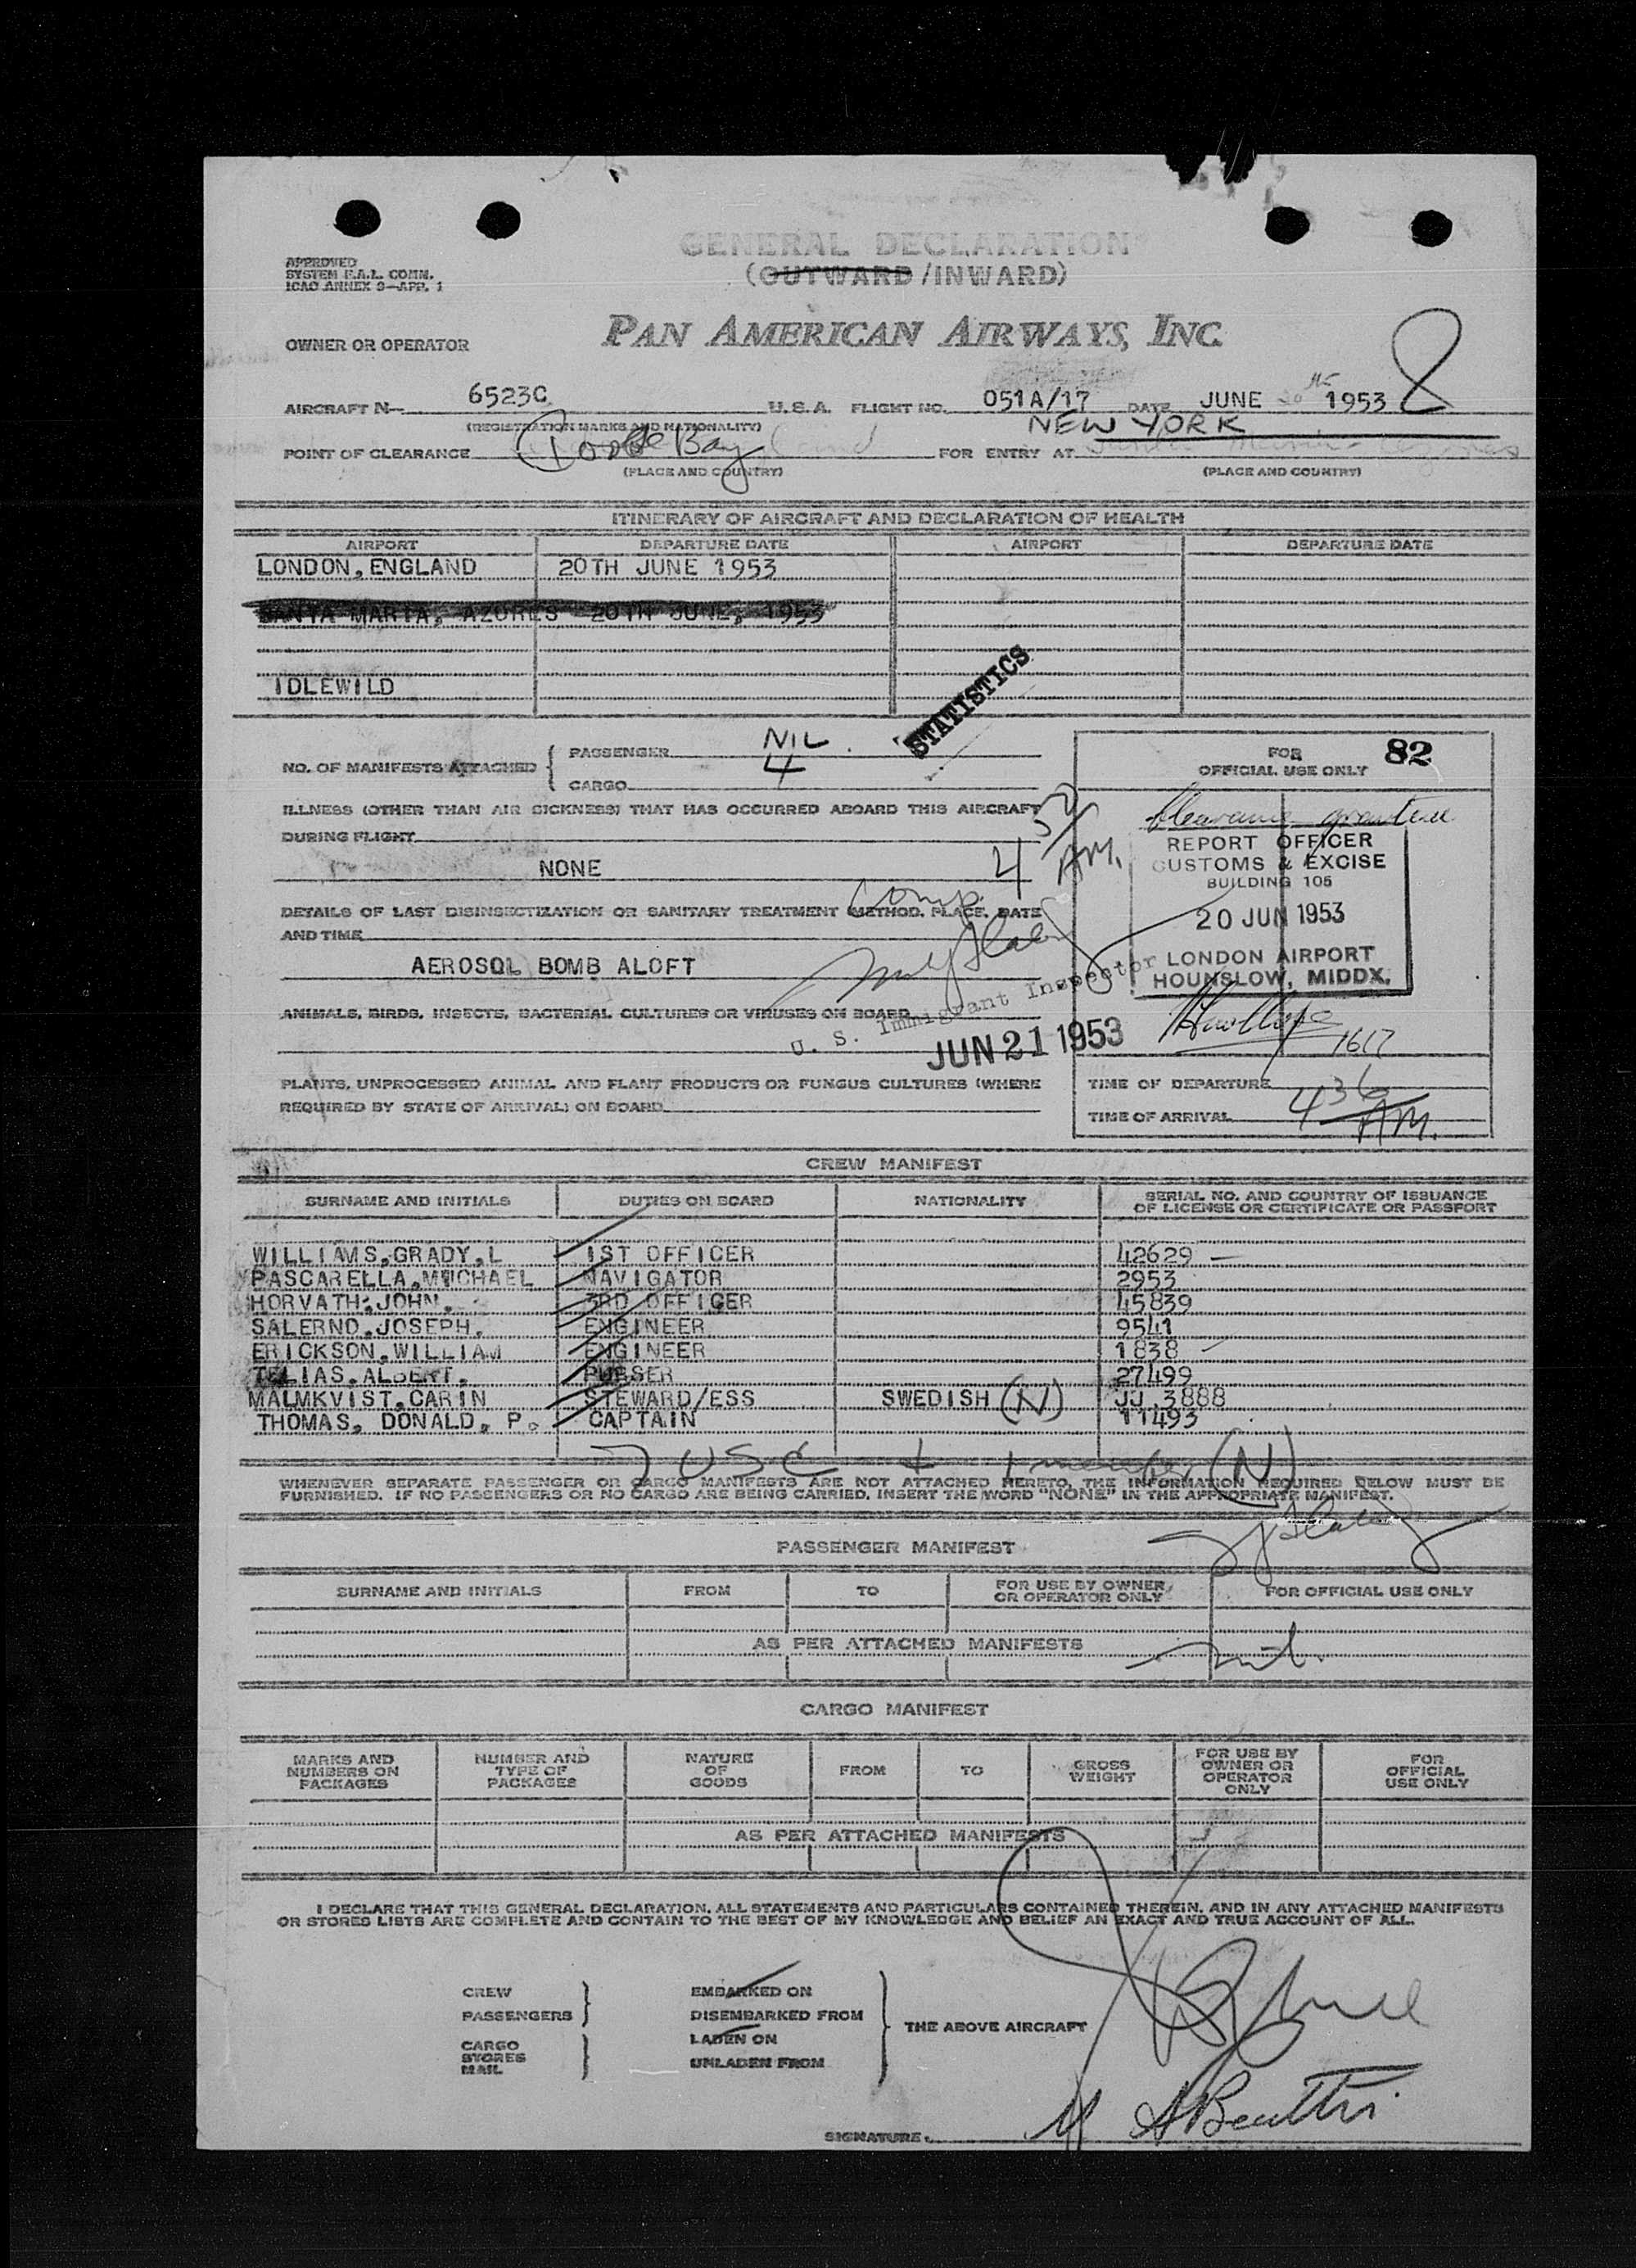 GENERAL DECLARATION
(OUTWARD/INWARD)
APPROVED
SYSTEM F.A.L. COMM.
ICAO ANNEX 9—APP. 1
OWNER OR OPERATOR PAN AMERICAN AIRWAYS, INC.
8
AIRCRAFT N— 6523C U.S.A. FLIGHT NO. 051A/17 DATE JUNE 1953
(REGISTRATION MARKS AND NATIONALITY)
NEW YORK
POINT OF CLEARANCE Goose Bay FOR ENTRY AT
(PLACE AND COUNTRY) (PLACE AND COUNTRY)
ITINERARY OF AIRCRAFT AND DECLARATION OF HEALTH
AIRPORT DEPARTURE DATE AIRPORT DEPARTURE DATE
LONDON, ENGLAND 20TH JUNE 1953
SANTA MARIA, AZORES 20TH JUNE, 1953
IDLEWILD
STATISTICS
NO. OF MANIFESTS ATTACHED { PASSENGER NIL
CARGO 4
FOR 82
OFFICIAL USE ONLY
ILLNESS (OTHER THAN AIR SICKNESS) THAT HAS OCCURRED ABOARD THIS AIRCRAFT
DURING FLIGHT
NONE
4 52 AM.
Clearance granted
REPORT OFFICER
CUSTOMS & EXCISE
BUILDING 105
20 JUN 1953
LONDON AIRPORT
HOUNSLOW, MIDDX.
1617
Comp.
DETAILS OF LAST DISINSECTIZATION OR SANITARY TREATMENT (METHOD, PLACE, DATE
AND TIME
AEROSOL BOMB ALOFT
U. S. Immigrant Inspector
ANIMALS, BIRDS, INSECTS, BACTERIAL CULTURES OR VIRUSES ON BOARD
JUN 21 1953
PLANTS, UNPROCESSED ANIMAL AND PLANT PRODUCTS OR FUNGUS CULTURES (WHERE
REQUIRED BY STATE OF ARRIVAL) ON BOARD
TIME OF DEPARTURE
TIME OF ARRIVAL 4 36 AM.
CREW MANIFEST
SURNAME AND INITIALS DUTIES ON BOARD NATIONALITY SERIAL NO. AND COUNTRY OF ISSUANCE
OF LICENSE OR CERTIFICATE OR PASSPORT
WILLIAMS,GRADY,L 1ST OFFICER 42629
PASCARELLA,MICHAEL NAVIGATOR 2953
HORVATH,JOHN. 3RD OFFICER 45839
SALERNO,JOSEPH. ENGINEER 9541
ERICKSON,WILLIAM ENGINEER 1838
TELIAS.ALBERT. PURSER 27499
MALMKVIST,CARIN STEWARD/ESS SWEDISH (N) JJ 3888
THOMAS, DONALD, P. CAPTAIN 11493
7 USC + 1 member (N)
WHENEVER SEPARATE PASSENGER OR CARGO MANIFESTS ARE NOT ATTACHED HERETO, THE INFORMATION REQUIRED BELOW MUST BE
FURNISHED. IF NO PASSENGERS OR NO CARGO ARE BEING CARRIED, INSERT THE WORD "NONE" IN THE APPROPRIATE MANIFEST.
PASSENGER MANIFEST
SURNAME AND INITIALS FROM TO FOR USE BY OWNER
OR OPERATOR ONLY FOR OFFICIAL USE ONLY
AS PER ATTACHED MANIFESTS
nil.
CARGO MANIFEST
MARKS AND
NUMBERS ON
PACKAGES NUMBER AND
TYPE OF
PACKAGES NATURE
OF
GOODS FROM TO GROSS
WEIGHT FOR USE BY
OWNER OR
OPERATOR
ONLY FOR
OFFICIAL
USE ONLY
AS PER ATTACHED MANIFESTS
I DECLARE THAT THIS GENERAL DECLARATION, ALL STATEMENTS AND PARTICULARS CONTAINED THEREIN, AND IN ANY ATTACHED MANIFESTS
OR STORES LISTS ARE COMPLETE AND CONTAIN TO THE BEST OF MY KNOWLEDGE AND BELIEF AN EXACT AND TRUE ACCOUNT OF ALL.
CREW EMBARKED ON
PASSENGERS DISEMBARKED FROM
THE ABOVE AIRCRAFT
CARGO LADEN ON
STORES
MAIL UNLADEN FROM
SIGNATURE